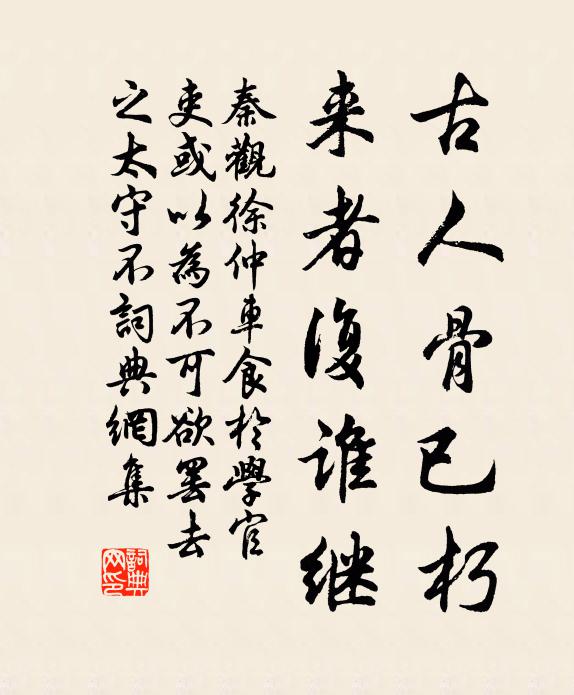 古人骨已朽
来者復谁继
秦觀徐仲車食於學官
吏或以為不可欲罢去
之太守不詞典網集
詞典
网印